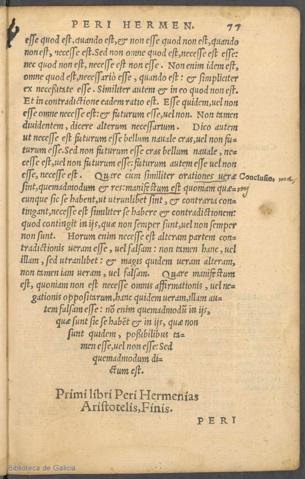 PERI HERMEN. 77
esse quod est, quando est, & non esse quod non est, quando
non est, necesse est. Sed non omne quod est, necesse est esse:
nec quod non est, necesse est non esse. Non enim idem est,
omne quod est, necessariò esse, quando est: & simpliciter
ex necessitate esse. Similiter autem & in eo quod non est.
Et in contradictione eadem ratio est. Esse quidem, uel non
esse omne necesse est: & futurum esse, uel non. Non tamen
diuidentem, dicere alterum necessarium. Dico autem
ut necesse est futurum esse bellum nauale cras, uel non fu-
turum esse. Sed non futurum esse cras bellum nauale, ne-
cesse est, uel non futurum esse: futurum autem esse uel non
esse, necesse est. Quare cum similiter orationes ueræ Conclusio.
sint, quemadmodum & res: manifestum est quoniam quæ-
cunque sic se habent, ut utrunlibet sint, & contraria con-
tingant, necesse est similiter se habere & contradictionem:
quod contingit in ijs, quæ non semper sunt, uel non semper
non sunt. Horum enim necesse est alteram partem con-
tradictionis ueram esse, uel falsam: non tamen hanc, uel
illam, sed utranlibet: & magis quidem ueram alteram,
non tamen iam ueram, uel falsam. Quare manifestum
est, quoniam non est necesse omnis affirmationis, uel ne-
gationis oppositarum, hanc quidem ueram, illam au-
tem falsam esse: nõ enim quemadmodũ in ijs,
quæ sunt sic se habẽt & in ijs, quæ non
sunt quidem, possibilibus ta-
men esse, uel non esse: Sed
quemadmodum di-
ctum est.
Primi libri Peri Hermenias
Aristotelis, Finis.
PERI
Biblioteca de Galicia